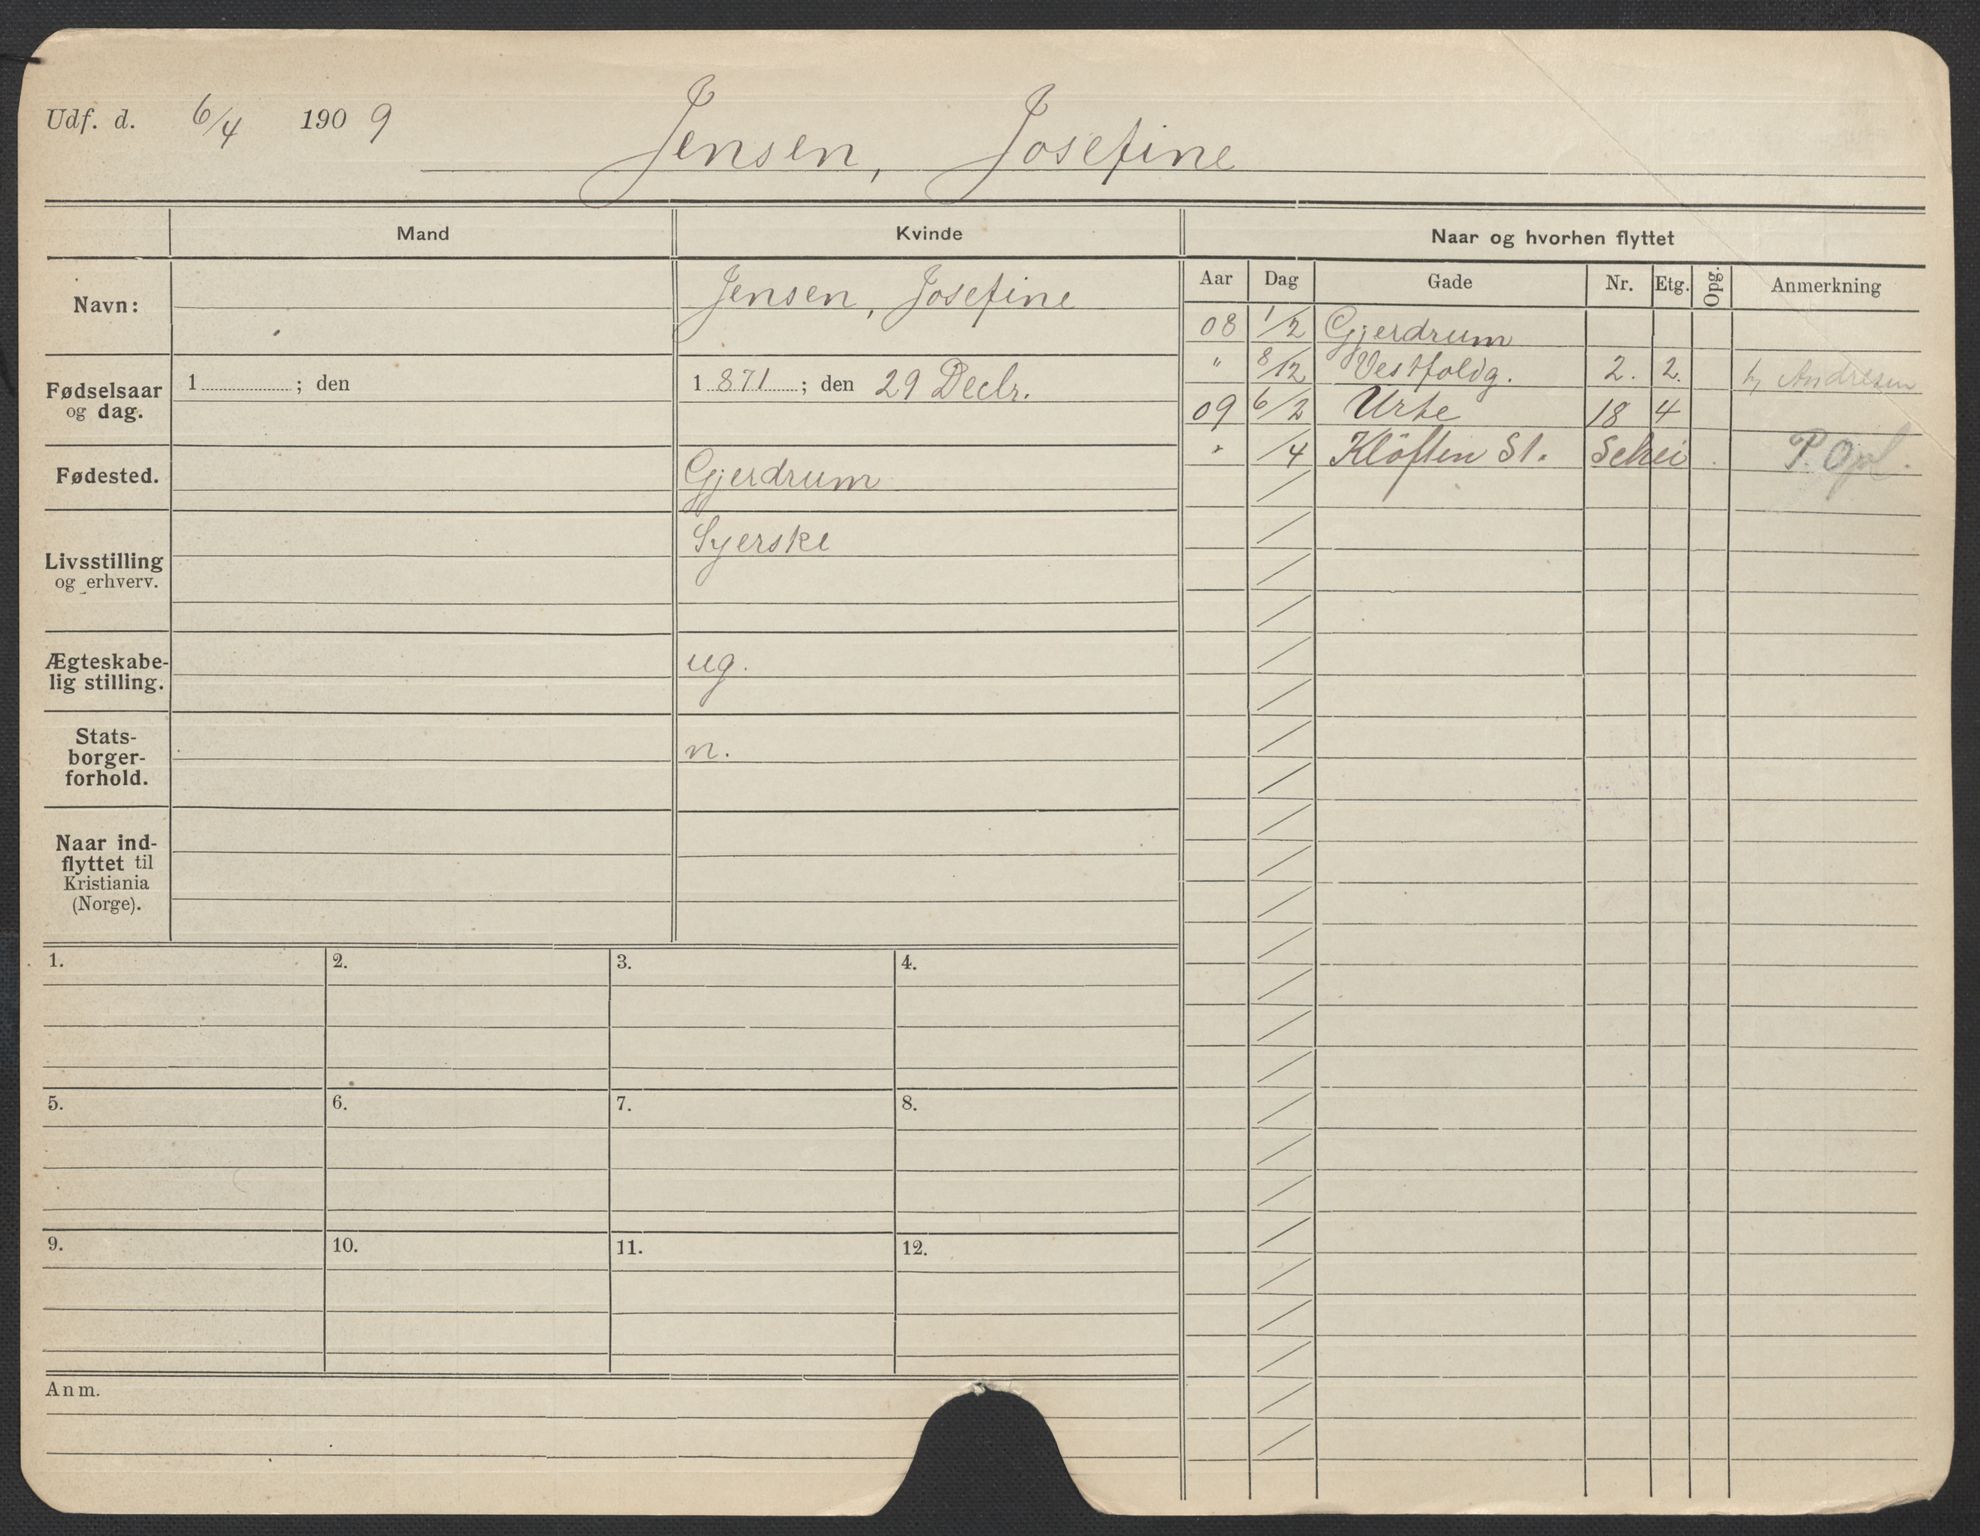 Udf. d. 6/4 1909
Jensen, Josefine
Mand
Kvinde
Naar og hvorhen flyttet
Navn:
Jensen, Josefine
Fødselsaar
og dag.
1 ; den
1871; den 29 Decbr.
Fødested.
Gjerdrum
Livsstilling
og erhverv.
Syerske
Ægteskabe-
lig stilling.
ug.
Stats-
borger-
forhold.
n.
Naar ind-
flyttet til
Kristiania
(Norge).
Aar Dag Gade Nr. Etg. Opg. Anmerkning
08 1/2 Gjerdrum
" 8/12 Vestfoldg. 2. 2. Andresen
09 6/2 Urte 18 4
" /4 Kløften St.
1. 2. 3. 4.
5. 6. 7. 8.
9. 10. 11. 12.
Anm.